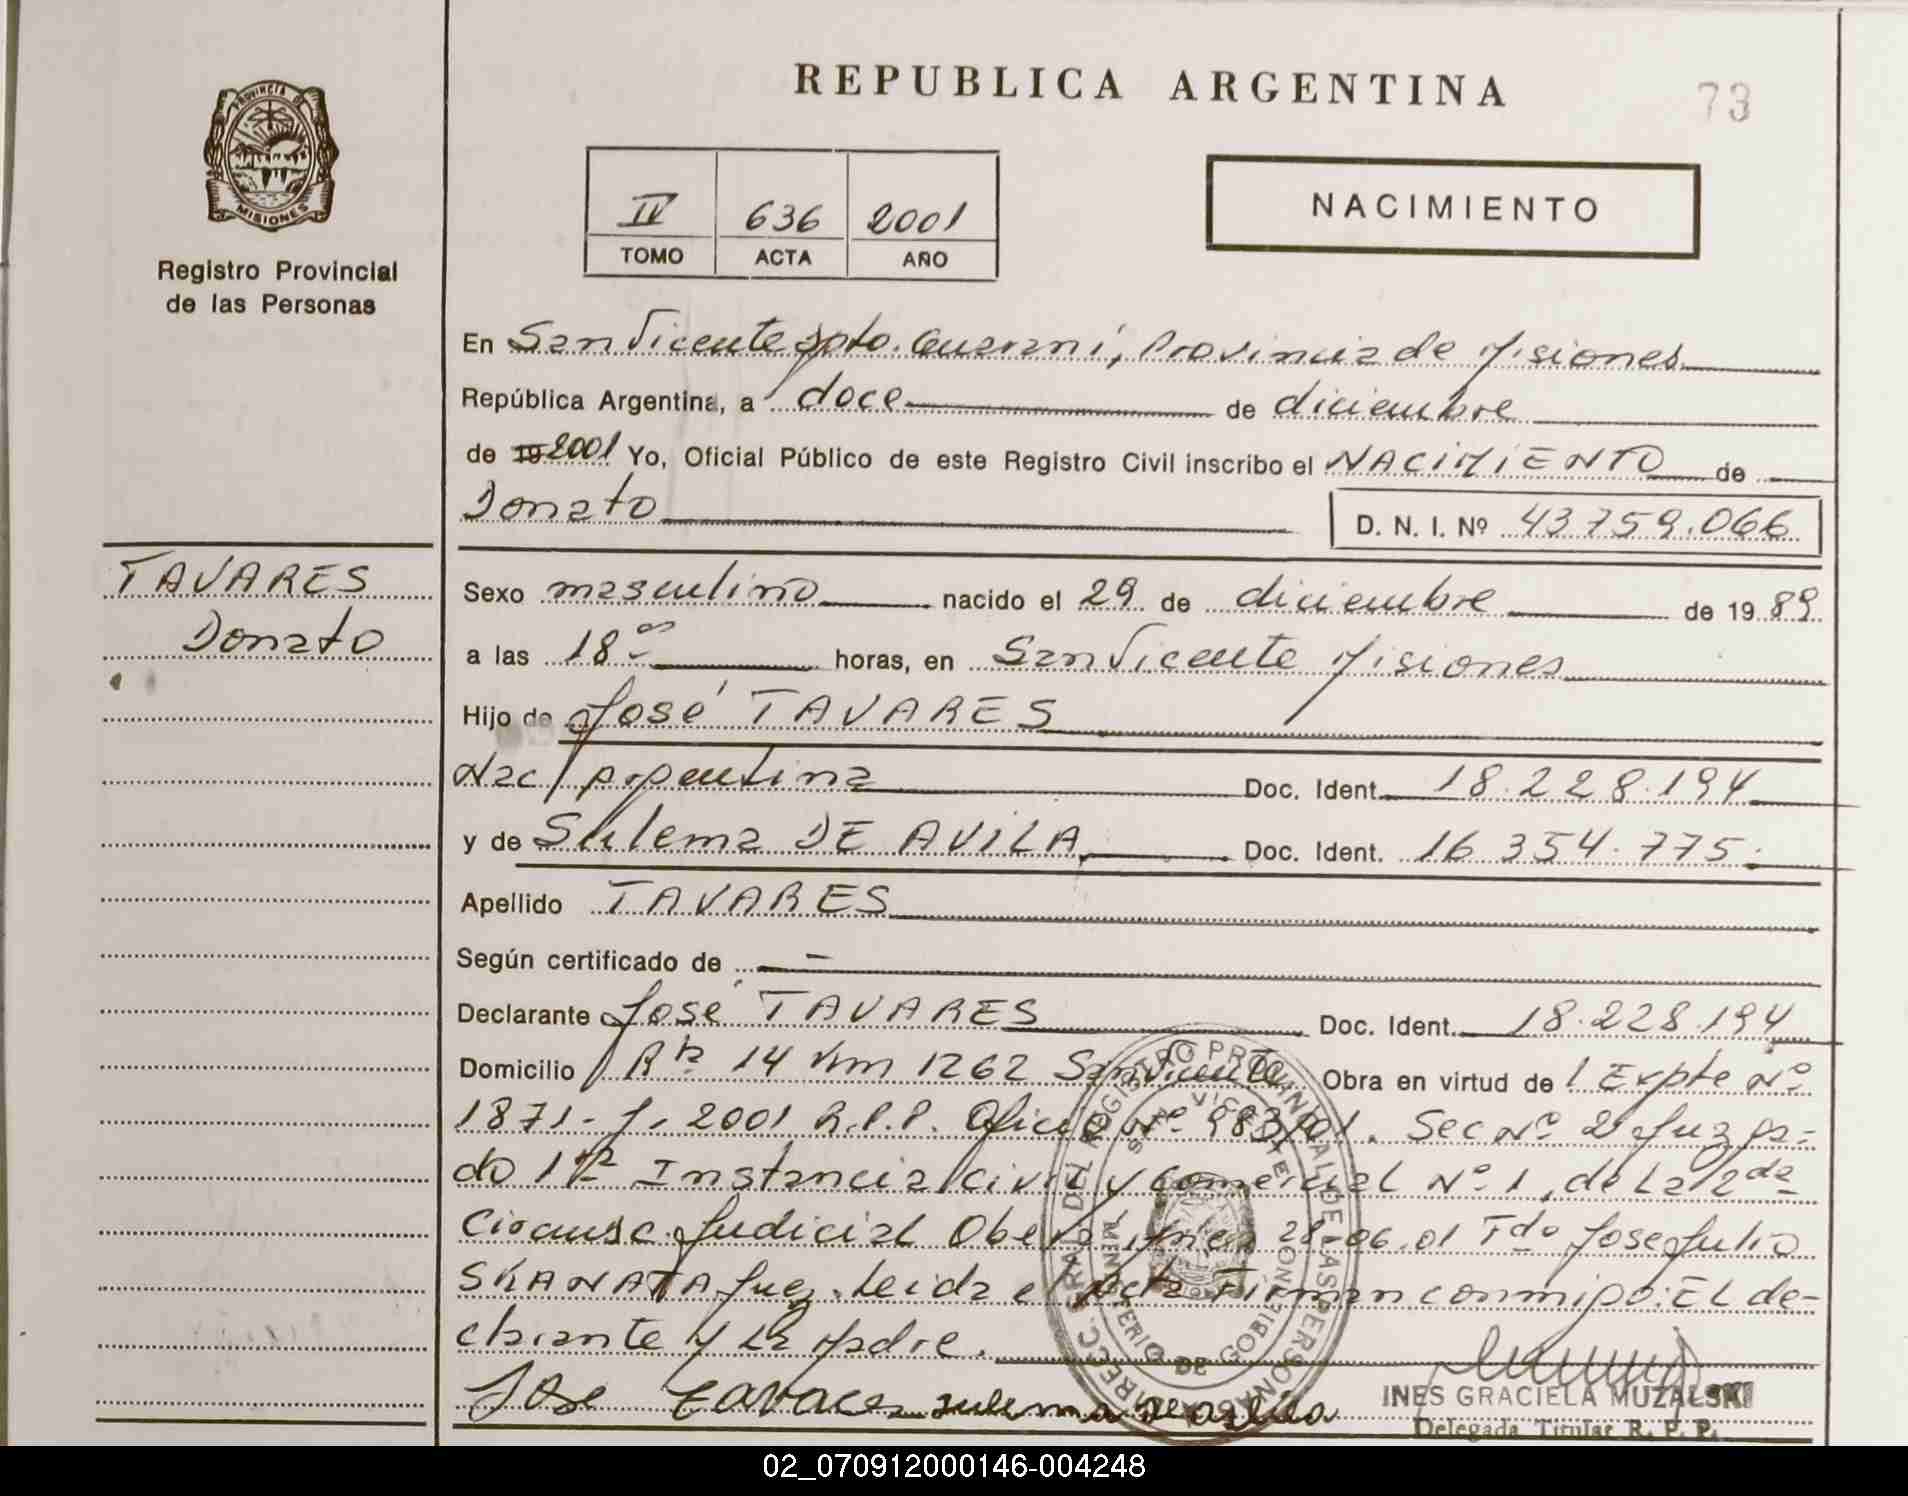 REPUBLICA ARGENTINA
73
PROVINCIA DE
MISIONES
Registro Provincial
de las Personas
IV 636 2001
TOMO ACTA AÑO
NACIMIENTO
En San Vicente Dpto. Guaraní, Provincia de Misiones
República Argentina, a doce de diciembre
de 19 2001 Yo, Oficial Público de este Registro Civil inscribo el NACIMIENTO de
Donato D. N. I. Nº 43.759.066
TAVARES
Donato
Sexo masculino nacido el 29 de diciembre de 19 89
a las 18 horas, en San Vicente Misiones
Hijo de José TAVARES
Nac/ Argentina Doc. Ident. 18.228.194
y de Sulema DE AVILA Doc. Ident. 16 354.775.
Apellido TAVARES
Según certificado de —
Declarante José TAVARES Doc. Ident. 18.228.194
Domicilio Rta 14 Km 1262 San Vicente Obra en virtud de Expte Nº
1871-J-2001 R.P.P. Oficio Nº 983/01. Sec Nº 2 Juzga-
do 1ra Instancia Civil y Comercial Nº 1, de La 2da
Circunsc. Judicial Oberá 28-06.01 Fdo José Julio
SKANATA Juez. Leida el Acta Firman conmigo: EL de-
clarante y La Madre.
Jose Tavares sulema de avila
INES GRACIELA MUZALSKI
Delegada Titular R. P. P.
DIRECC. GRAL DEL REGISTRO PROVINCIAL DE LAS PERSONAS
SAN VICENTE MISIONES
MINISTERIO DE GOBIERNO
02_070912000146-004248